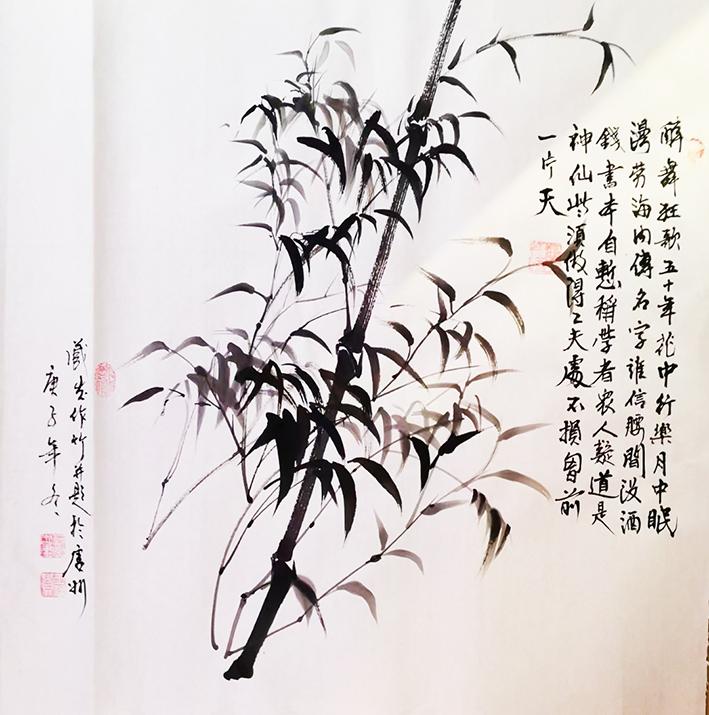 醉舞狂歌五十年花中行樂月中眠
漫劳海内傳名字谁信腰間没酒
錢書本自慙稱學者衆人疑道是
神仙些須做得工夫處不損胷前
一片天
作竹并题於唐州
庚子年冬